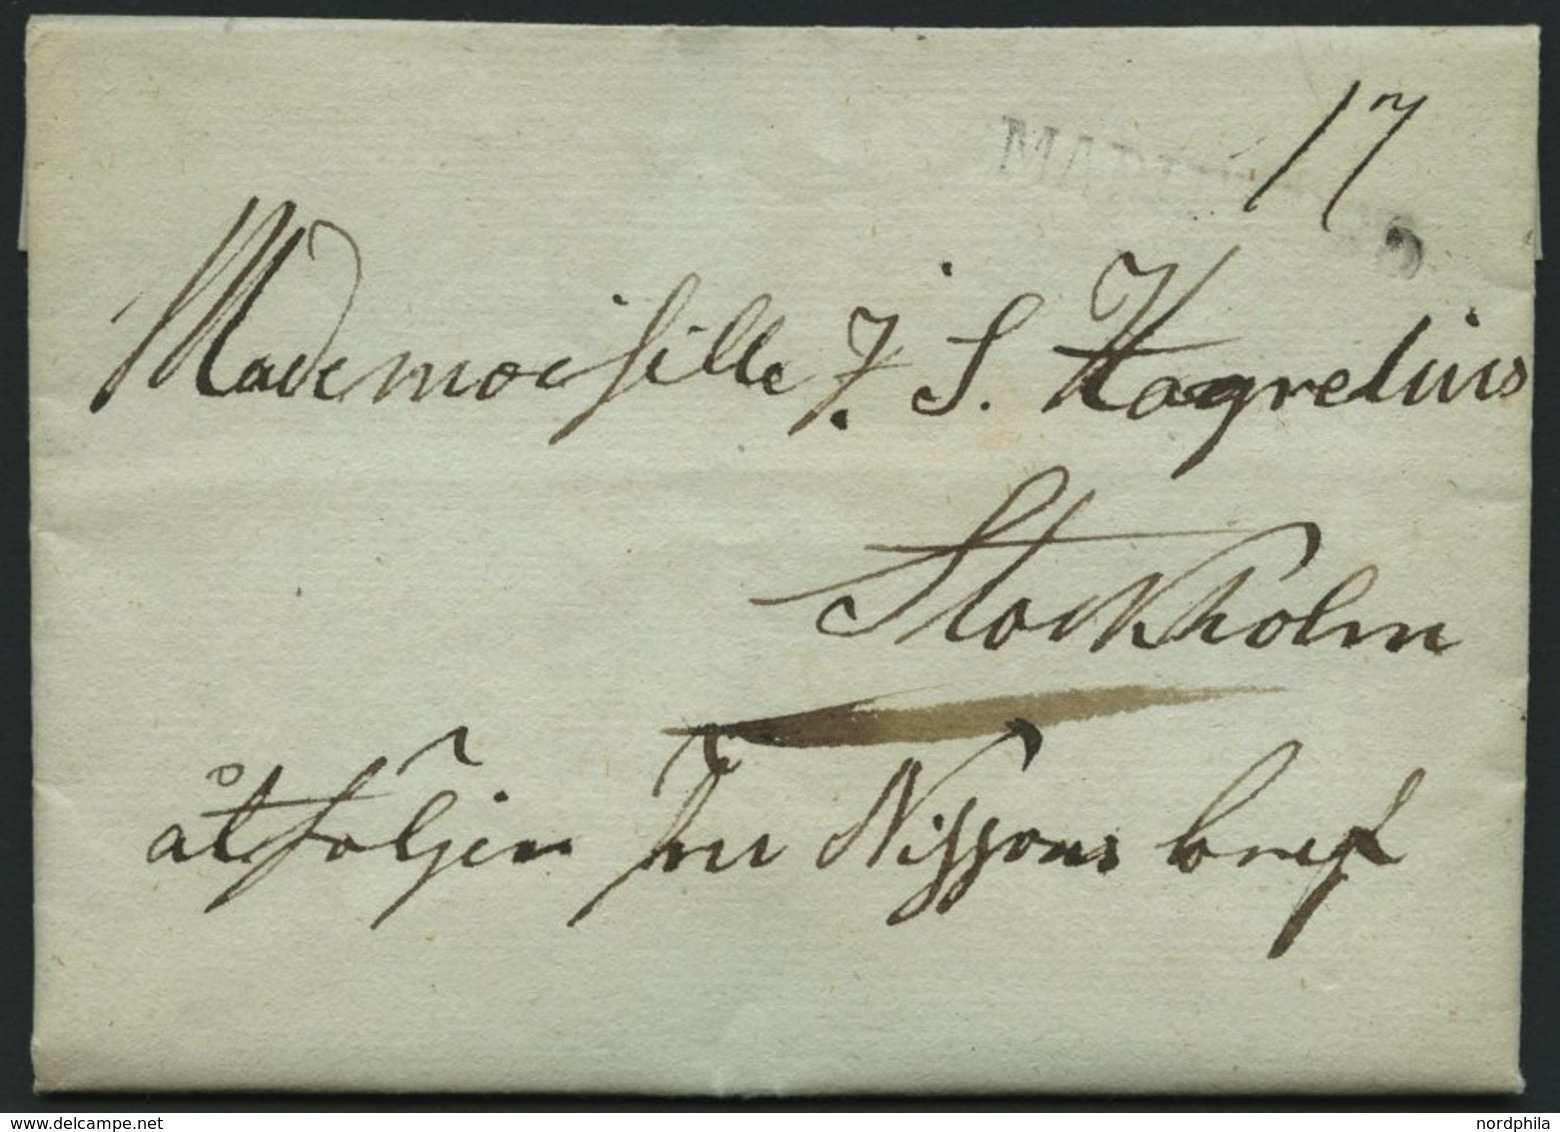 17
MARIEST
Mademoiselle J. S. Hagrelius
Stockholm
åtföljer Fru Nissons bref
www.delcampe.net
nordphila